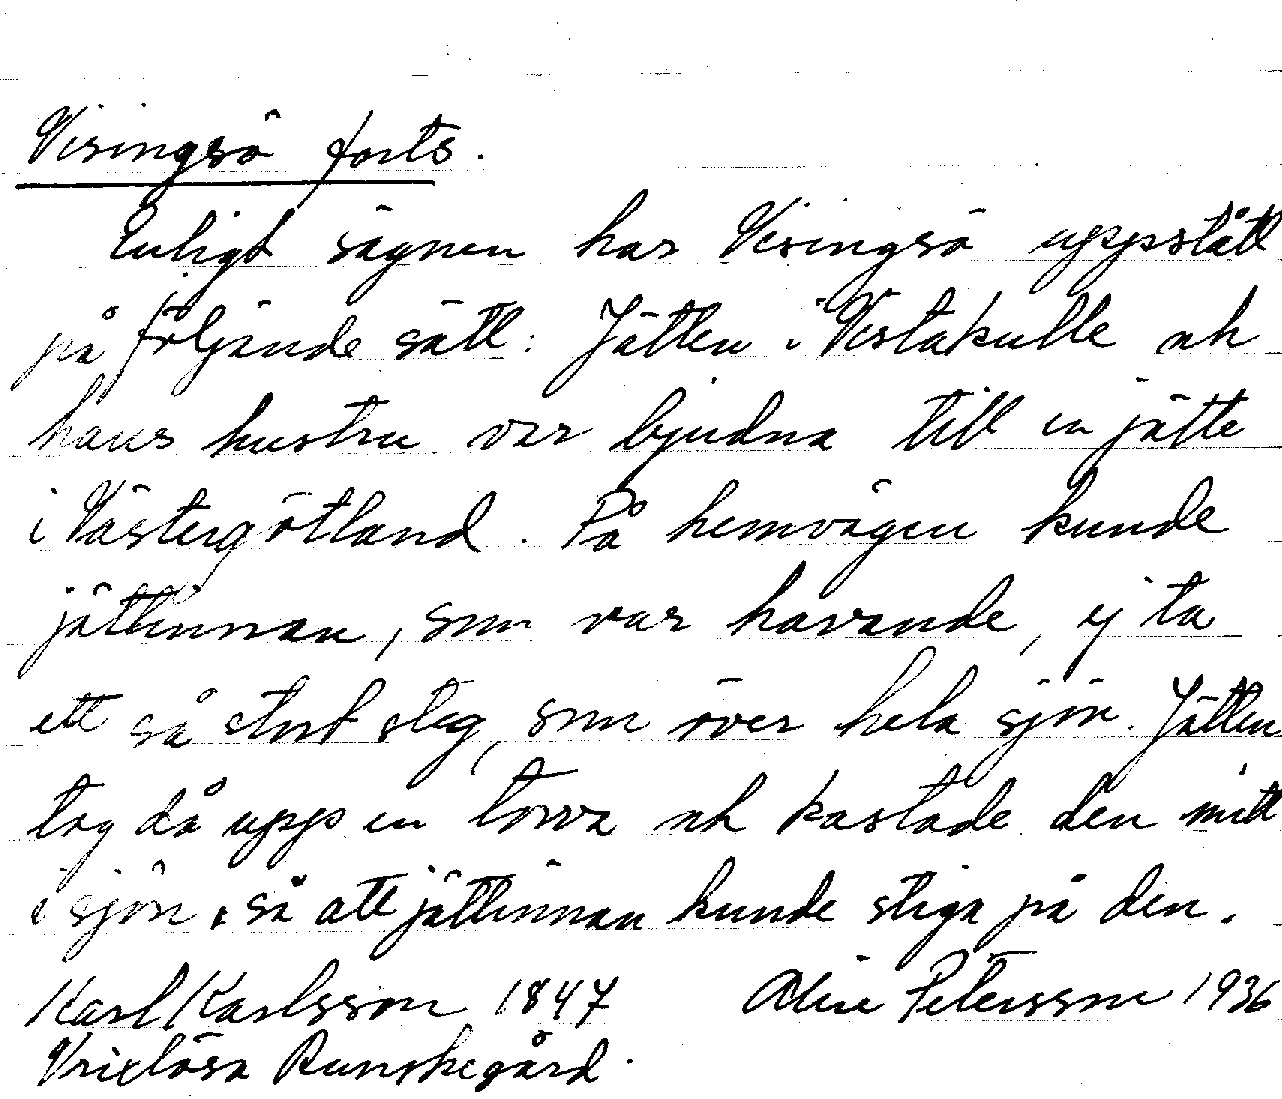 Visingsö forts.
Enligt sägnen har Visingsö uppstått
på följande sätt: Jätten i Vistakulle och
hans hustru var bjudna till en jätte
i Västergötland. På hemvägen kunde
jättinnan, som var havande, ej ta
ett så stort steg, som över hela sjön. Jätten
tog då upp en torva och kastade den mitt
i sjön, så att jättinnan kunde stiga på den.
Karl Karlsson 1847 Petersson 1936